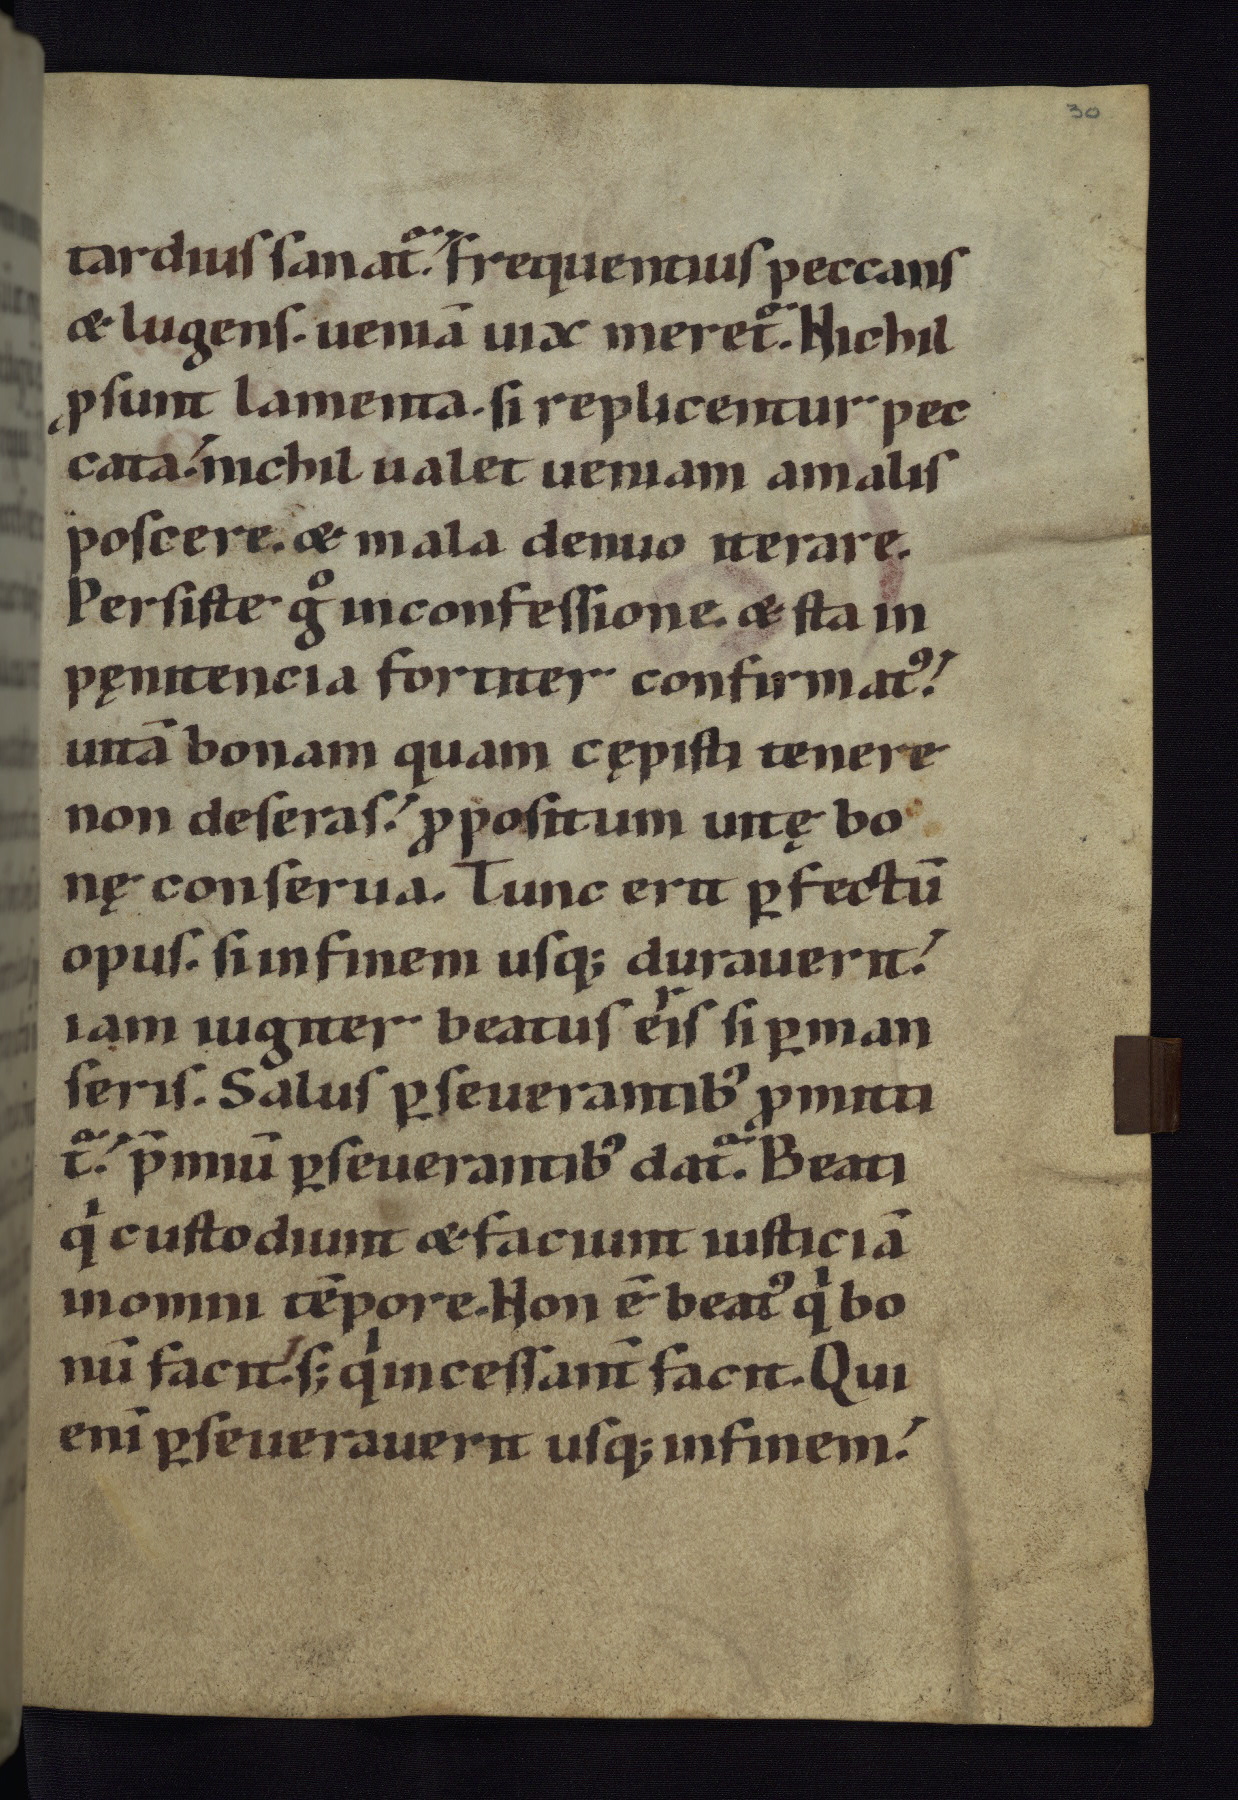 30
tardius sanat᷑. frequentius peccans
& lugens. ueniā uix meret᷑. Nichil
ꝓsunt lamenta. si replicentur pec
cata. nichil ualet ueniam a malis
poscere. & mala denuo iterare.
Persiste gͦ in confessione. & sta in
pęnitencia fortiter confirmatꝰ.
uitā bonam quam cępisti tenere
non deseras. ꝓpositum uitę bo
nę conserua. Tunc erit ꝑfectū
opus. si in finem usq; durauerit.
iam iugiter beatus eris si ꝑman
seris. Salus ꝑseuerantibꝰ ꝓmitti
t᷑. p̄miū ꝑseuerantibꝰ dat᷑. Beati
qͥ custodiunt & faciunt iusticiā
in omni tēpore. Non ē beatꝰ qͥ bo
nū facit. s; qͥ incessant̄ facit. Qui
eni̅ ꝑseuerauerit usq; in finem.